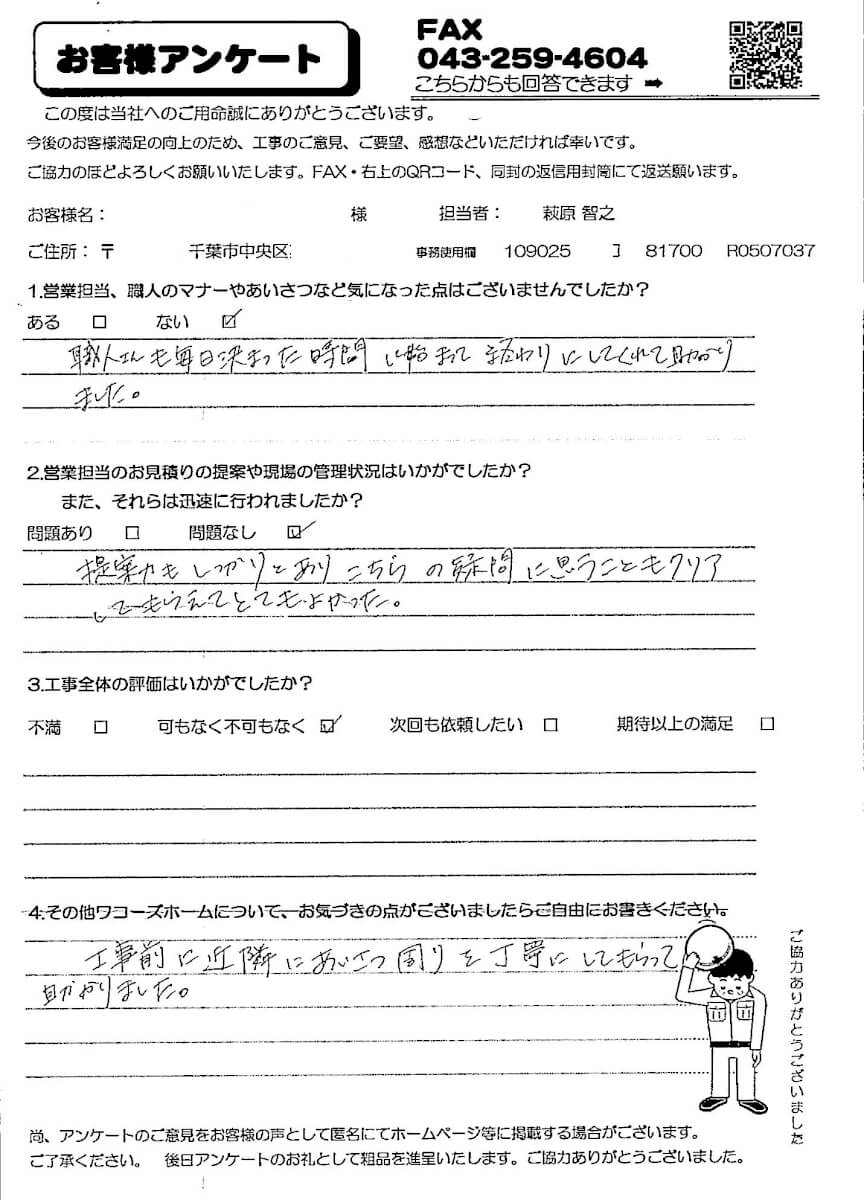 お客様アンケート
FAX
043-259-4604
こちらからも回答できます ➡
この度は当社へのご用命誠にありがとうございます。
今後のお客様満足の向上のため、工事のご意見、ご要望、感想などいただければ幸いです。
ご協力のほどよろしくお願いいたします。FAX・右上のQRコード、同封の返信用封筒にて返送願います。
お客様名： 様 担当者： 萩原 智之
ご住所：〒 千葉市中央区 事務使用欄 109025 81700 R0507037
1.営業担当、職人のマナーやあいさつなど気になった点はございませんでしたか？
ある □ ない ☑
職人さんも毎日決まった時間に始まって終わりにしてくれて助かり
ました。
2.営業担当のお見積りの提案や現場の管理状況はいかがでしたか？
また、それらは迅速に行われましたか？
問題あり □ 問題なし ☑
提案力もしっかりとありこちらの疑問に思うこともクリア
してもらえてとてもよかった。
3.工事全体の評価はいかがでしたか？
不満 □ 可もなく不可もなく ☑ 次回も依頼したい □ 期待以上の満足 □
4.その他ワコーズホームについて、お気づきの点がございましたらご自由にお書きください。
工事前に近隣にあいさつ周りを丁寧にしてもらって
助かりました。
ご協力ありがとうございました
尚、アンケートのご意見をお客様の声として匿名にてホームページ等に掲載する場合がございます。
ご了承ください。 後日アンケートのお礼として粗品を進呈いたします。ご協力ありがとうございました。